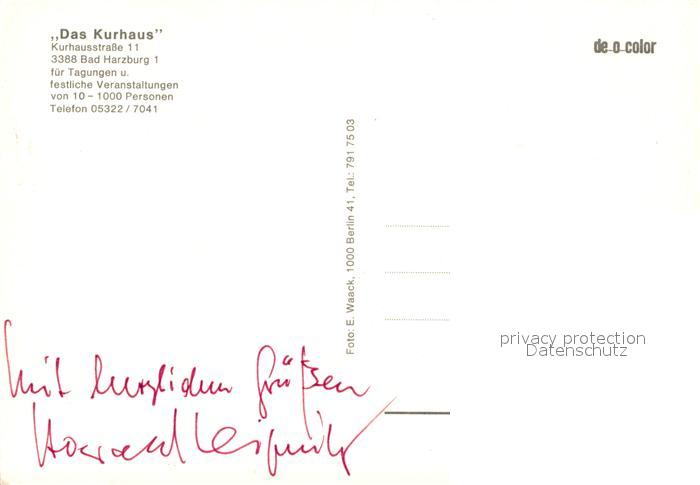 „Das Kurhaus”
Kurhausstraße 11
3388 Bad Harzburg 1
für Tagungen u.
festliche Veranstaltungen
von 10 – 1000 Personen
Telefon 05322 / 7041
de-o-color
Foto: E. Waack, 1000 Berlin 41, Tel.: 791 75 03
privacy protection
Datenschutz
Mit herzlichen Grüßen